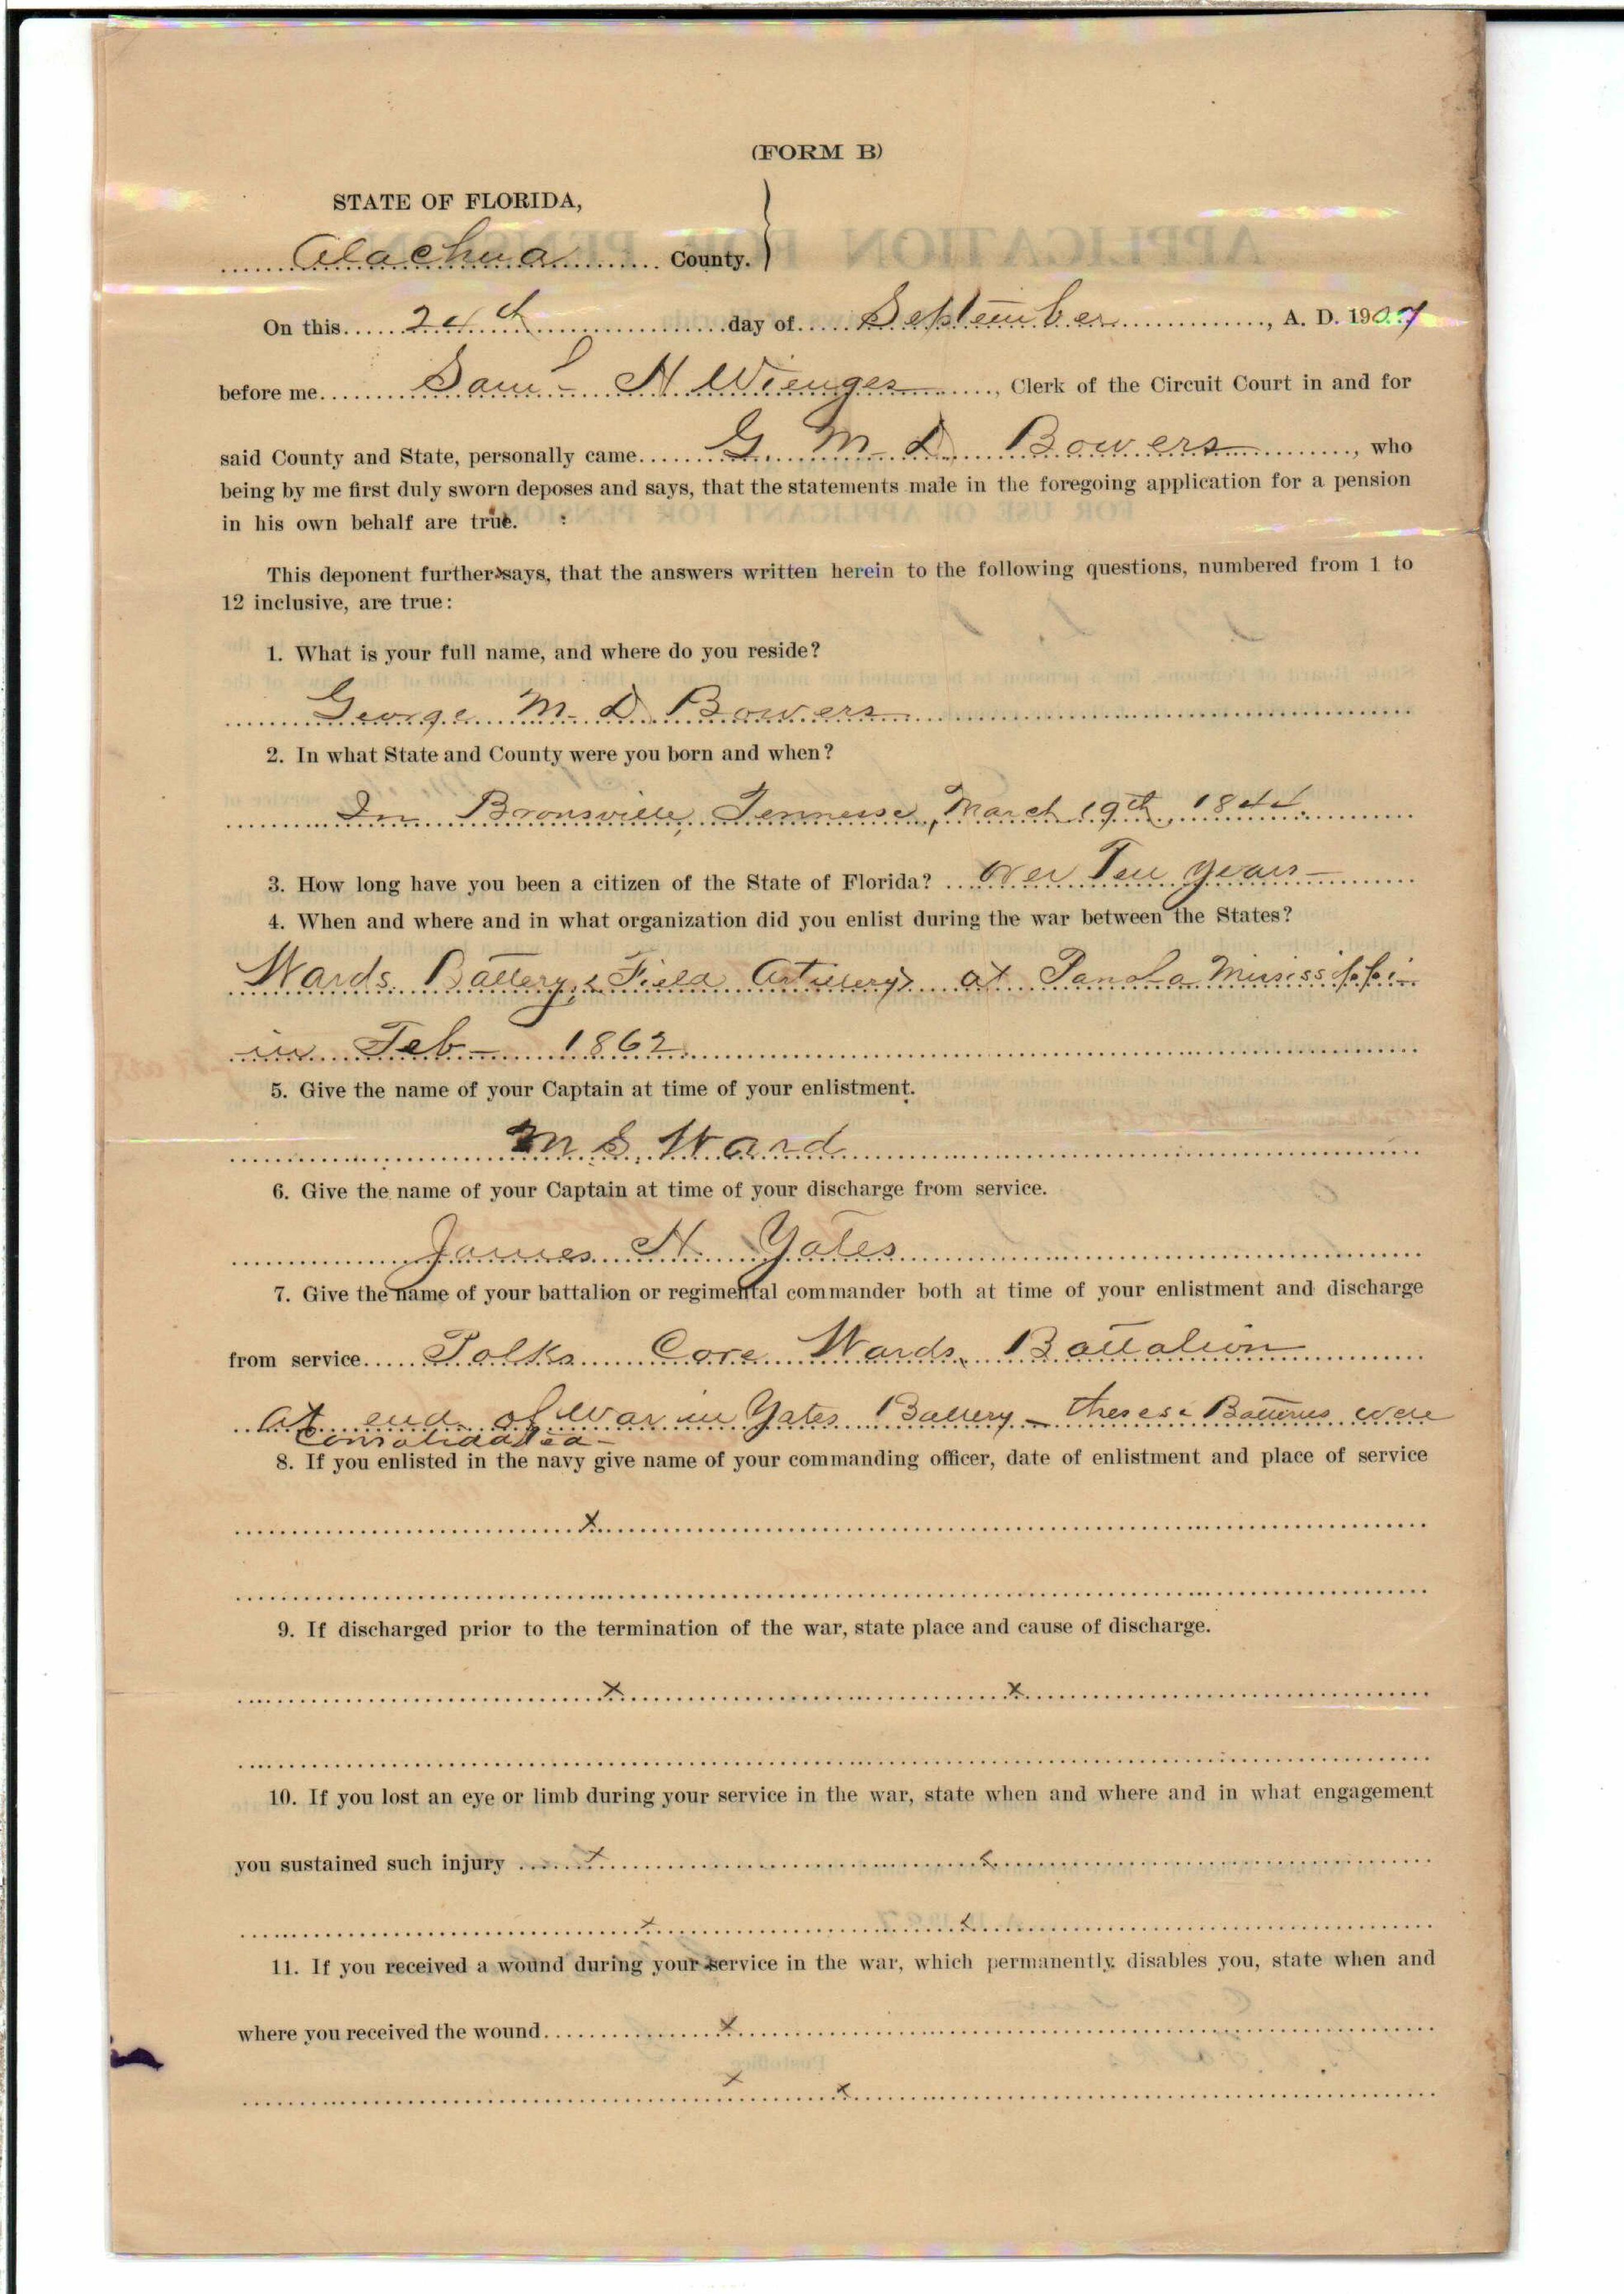 (FORM B)
STATE OF FLORIDA,
Alachua County.
On this 24th day of September, A. D. 1907
before me Saml H Wienges, Clerk of the Circuit Court in and for
said County and State, personally came G. M. D. Bowers, who
being by me first duly sworn deposes and says, that the statements made in the foregoing application for a pension
in his own behalf are true.
This deponent further says, that the answers written herein to the following questions, numbered from 1 to
12 inclusive, are true:
1. What is your full name, and where do you reside?
George M. D. Bowers
2. In what State and County were you born and when?
In Bronsville, Tennesse, March 19th, 1844.
3. How long have you been a citizen of the State of Florida? Over Ten years-
4. When and where and in what organization did you enlist during the war between the States?
Wards Battery, Field Artillery at Panola Mississippi-
in Feb- 1862
5. Give the name of your Captain at time of your enlistment.
M. S. Ward
6. Give the name of your Captain at time of your discharge from service.
James H. Yates
7. Give the name of your battalion or regimental commander both at time of your enlistment and discharge
from service Polks Core Wards Battalion
At end of War in Yates Battery - these Batteries were
consolidated-
8. If you enlisted in the navy give name of your commanding officer, date of enlistment and place of service
x
9. If discharged prior to the termination of the war, state place and cause of discharge.
x x
10. If you lost an eye or limb during your service in the war, state when and where and in what engagement
you sustained such injury x x
x x
11. If you received a wound during your service in the war, which permanently disables you, state when and
where you received the wound x
x x